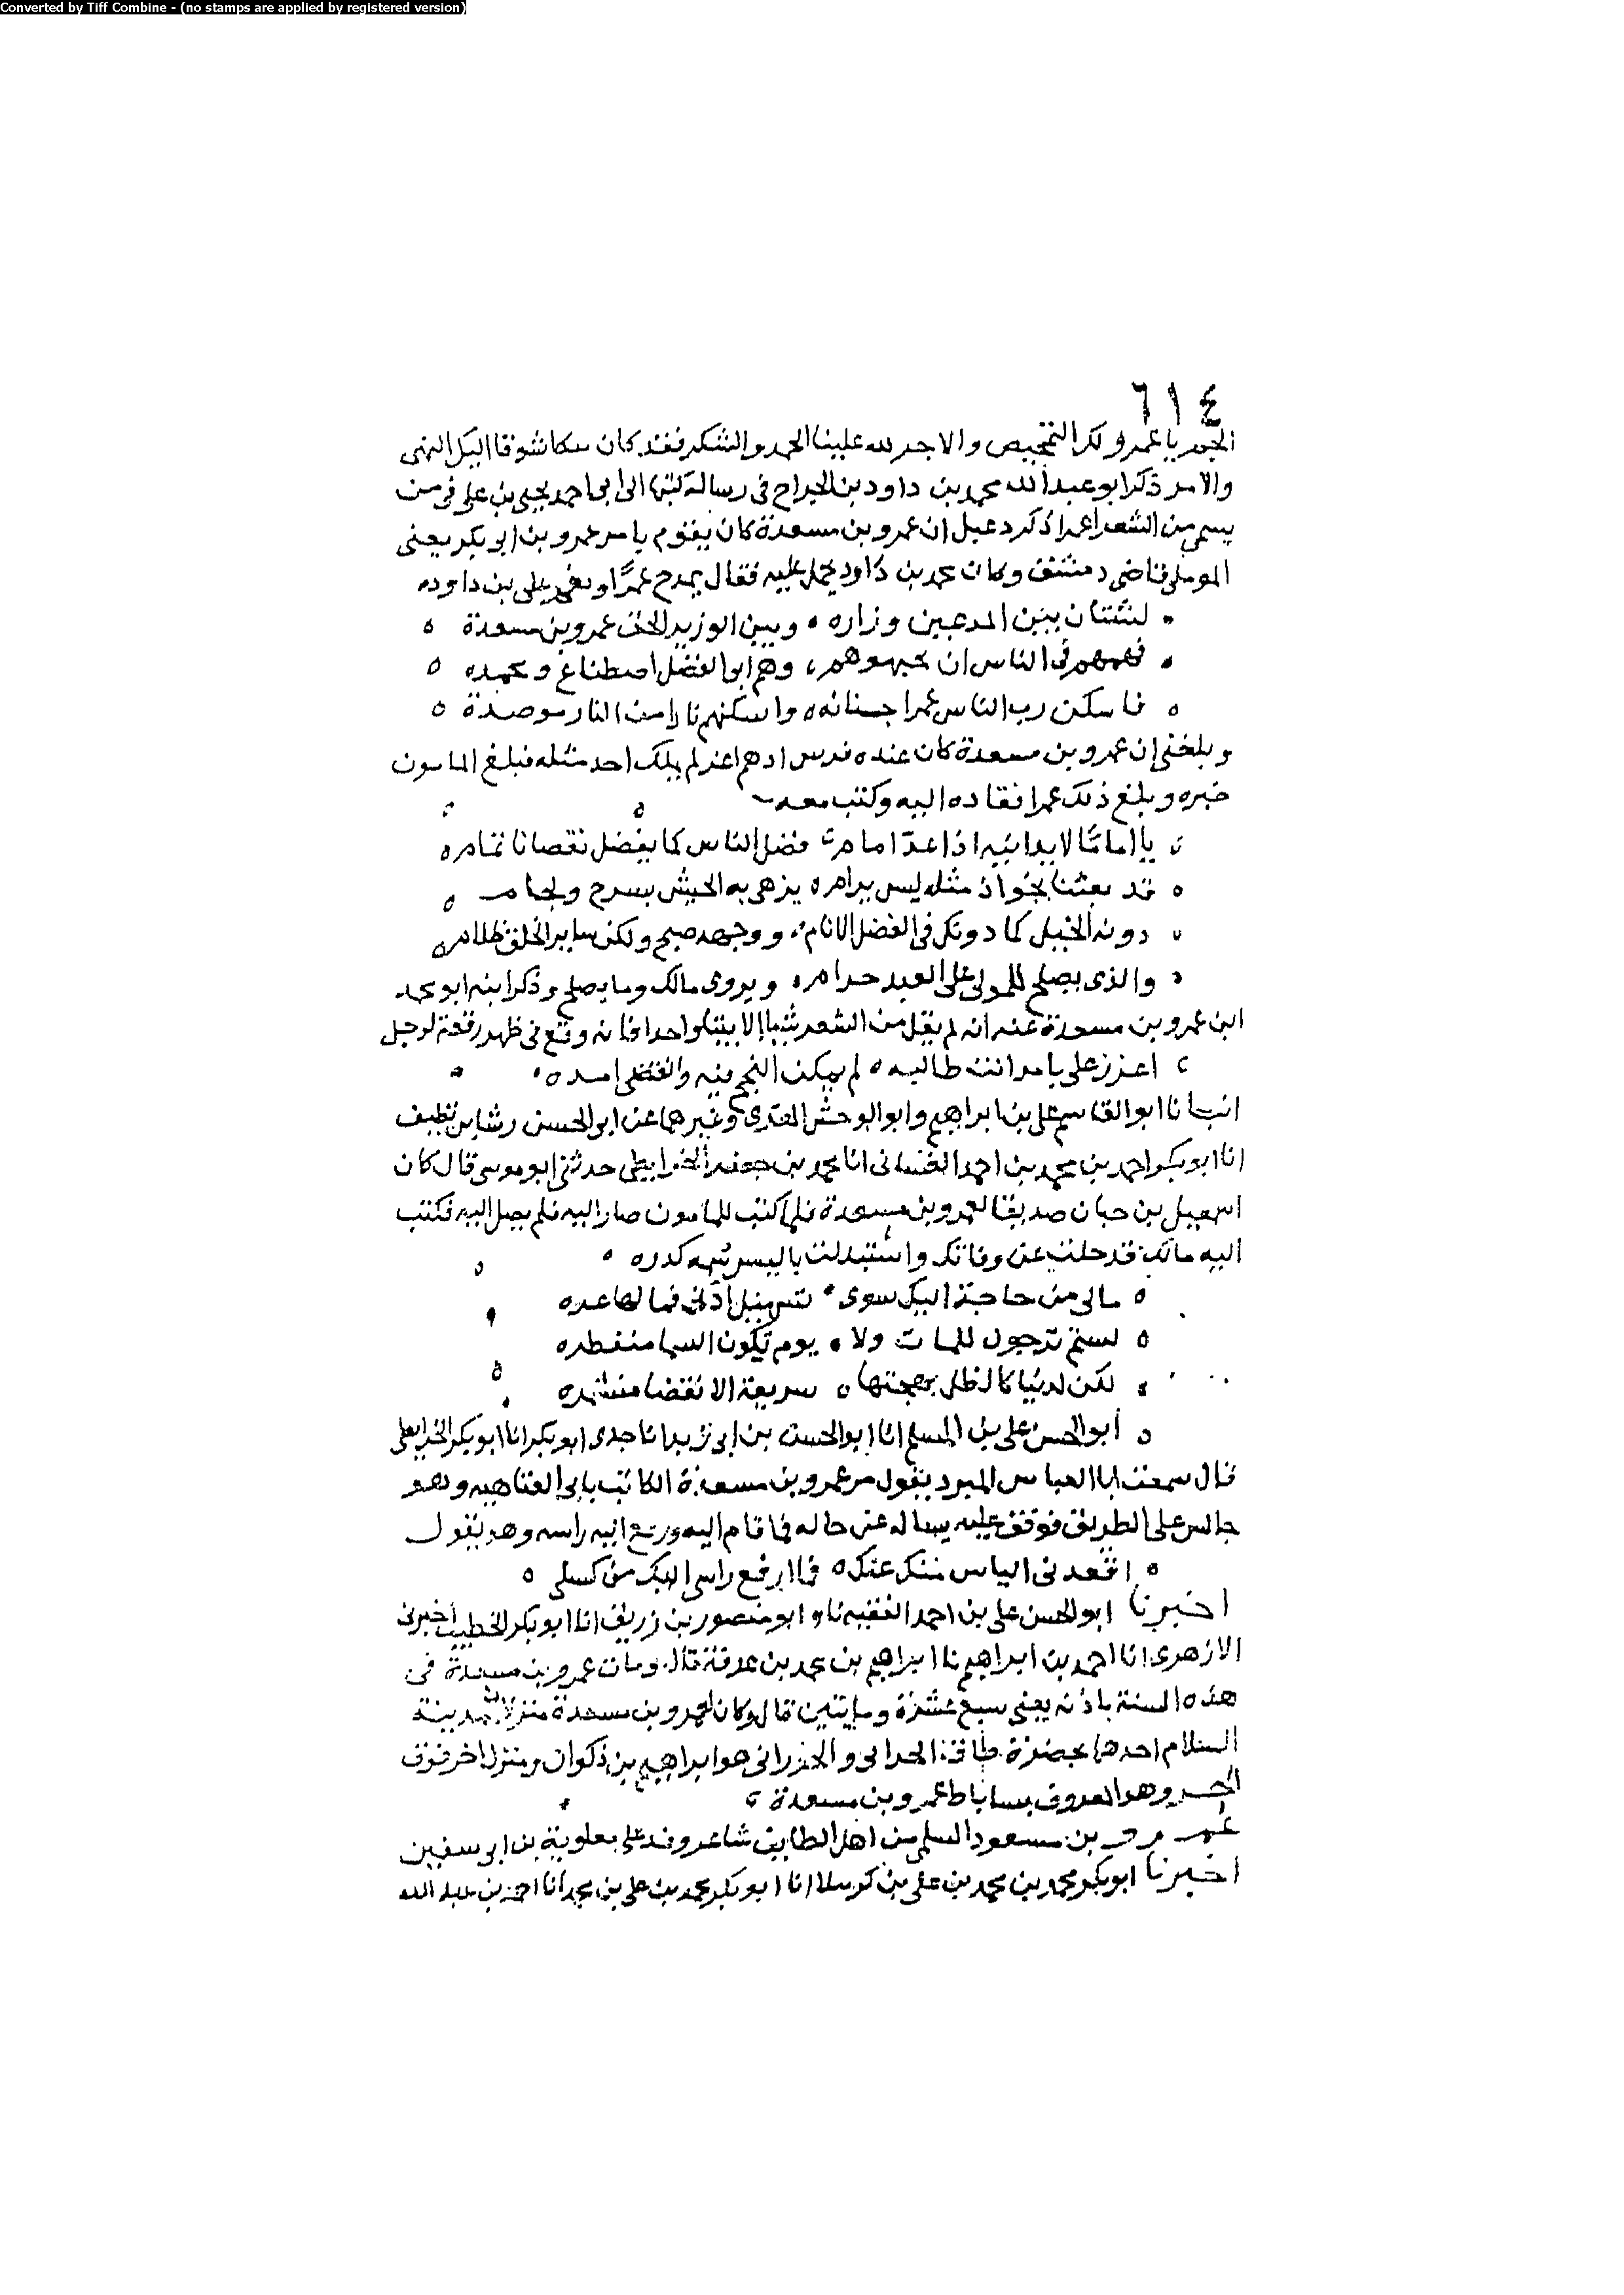 Converted by Tiff Combine - (no stamps are applied by registered version)
٦١٤
يا عمرو ولك التمحيص والاجر لله علينا الحمد والشكر فقد كان اليك النهى
والامر ذكر ابو عبد الله محمد بن داود بن الجراح فى رسالة كتبها الى ابى احمد يحيى بن على فى من
يسمى من الشعرا عمرا ذكر دعبل ان عمرو بن مسعدة كان يقوم بامر عمرو بن ابى بكر يعنى
الموصلى قاضى دمشق وكان محمد بن داود يحمل عليه فقال يمدح عمرًا على بن داود
لشتان بين المدعين وزاره وبين الوزير الحق عمرو بن مسعدة
فهمهم فى الناس ان يجبهوهم وهم ابى الفضل اصطناع ومحمده
فاسكن رب الناس عمرا جنانه واسكنهم نارا من النار موصدة
وبلغنى ان عمرو بن مسعدة كان عنده فرس ادهم اغر لم يملك احد مثله فبلغ المامون
خبره وبلغ ذلك عمرا فقاده اليه وكتب معه
يا اماما لا يدانيه اذا عد امام فضل الناس كما يفضل نقصانا تمام
قد بعثنا بجواد مثله ليس يرام يزهى به الحسن بسرج ولجام
دونه الخيل كما دونك فى الفضل الانام ووجهه صبح ولكن ساير الخلق ظلام
والذى يصلح للمولى على العبد حرام ويروى مالك وما يصلح وذكر ابنه ابو محمد
ابن عمرو بن مسعدة عنه انه لم يقل من الشعر شيا الا بيتا واحدا فانه وقع فى ظهر رقعة لرجل
اعزز على بامر انت طالبه لم يمكن النجح فيه وانقضى امده
انبانا ابو القاسم على بن ابراهيم وابو الوحش المقرى وغيرهما عن ابى الحسن رشا بن نظيف
انا ابو بكر احمد بن محمد بن احمد الغسانى انا محمد بن جعفر الخرايطى حدثنى ابو موسى قال كان
اسمعيل بن حبان صديقا لعمرو بن مسعدة فلما كتب للمامون صار اليه فلم يصل اليه فكتب
اليه مالك قد حلت عن وفائك واستبدلت باليسر كدره
مالى من حاجة اليك سوى تسهيل اذنى فما لها عده
لستم ترجون للمات ولا يوم تكون السما منفطره
لكن لدنيا كالظل بهجتها سريعة الانقضا منشمره
ابو الحسن على بن المسلم انا ابو الحسن بن ابى انا جدى ابو بكر انا ابو بكر الخرايطى
قال سمعت ابا العباس المبرد يقول مر عمرو بن مسعدة الكاتب بابى العتاهيه وهو
جالس على الطريق فوقف عليه يساله عن حاله فما قام اليه ورفع اليه راسه وهو يقول
اقعدنى الياس منك عنك فما ارفع راسى اليك من كسلى
اخبرنا ابو الحسن على بن احمد الفقيه نا وابو منصور بن زريق انا ابو بكر الخطيب اخبرنى
الازهرى انا احمد بن ابراهيم نا ابراهيم بن محمد بن عرفة قال ومات عمرو بن مسعدة فى
هذه السنة باذنه يعنى سبع عشرة ومايتين قال وكان لعمرو بن مسعدة منزلان بمدينة
السلام احدهما بحضرة طاق الحرانى والحرانى هو ابراهيم بن ذكوان ومنزل اخر فوق
الجسر وهو المعروف بساباط عمرو بن مسعدة
عمرو بن مسعود السلمى من اهل الطايف شاعر وفد على معاوية بن ابى سفين
اخبرنا ابو بكر محمد بن محمد بن على بن كرسلا انا ابو بكر محمد بن على بن محمد انا احمد بن عبد الله